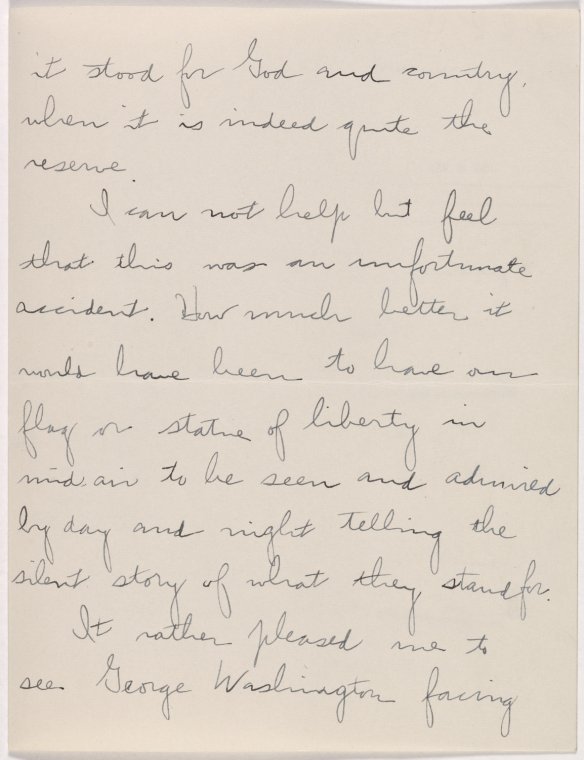 it stood for God and country,
when it is indeed quite the
reserve.
I can not help but feel
that this was an unfortunate
accident. How much better it
would have been to have our
flag or statue of liberty in
mid air to be seen and admired
by day and night telling the
silent story of what they stand for.
It rather pleased me to
see George Washington facing